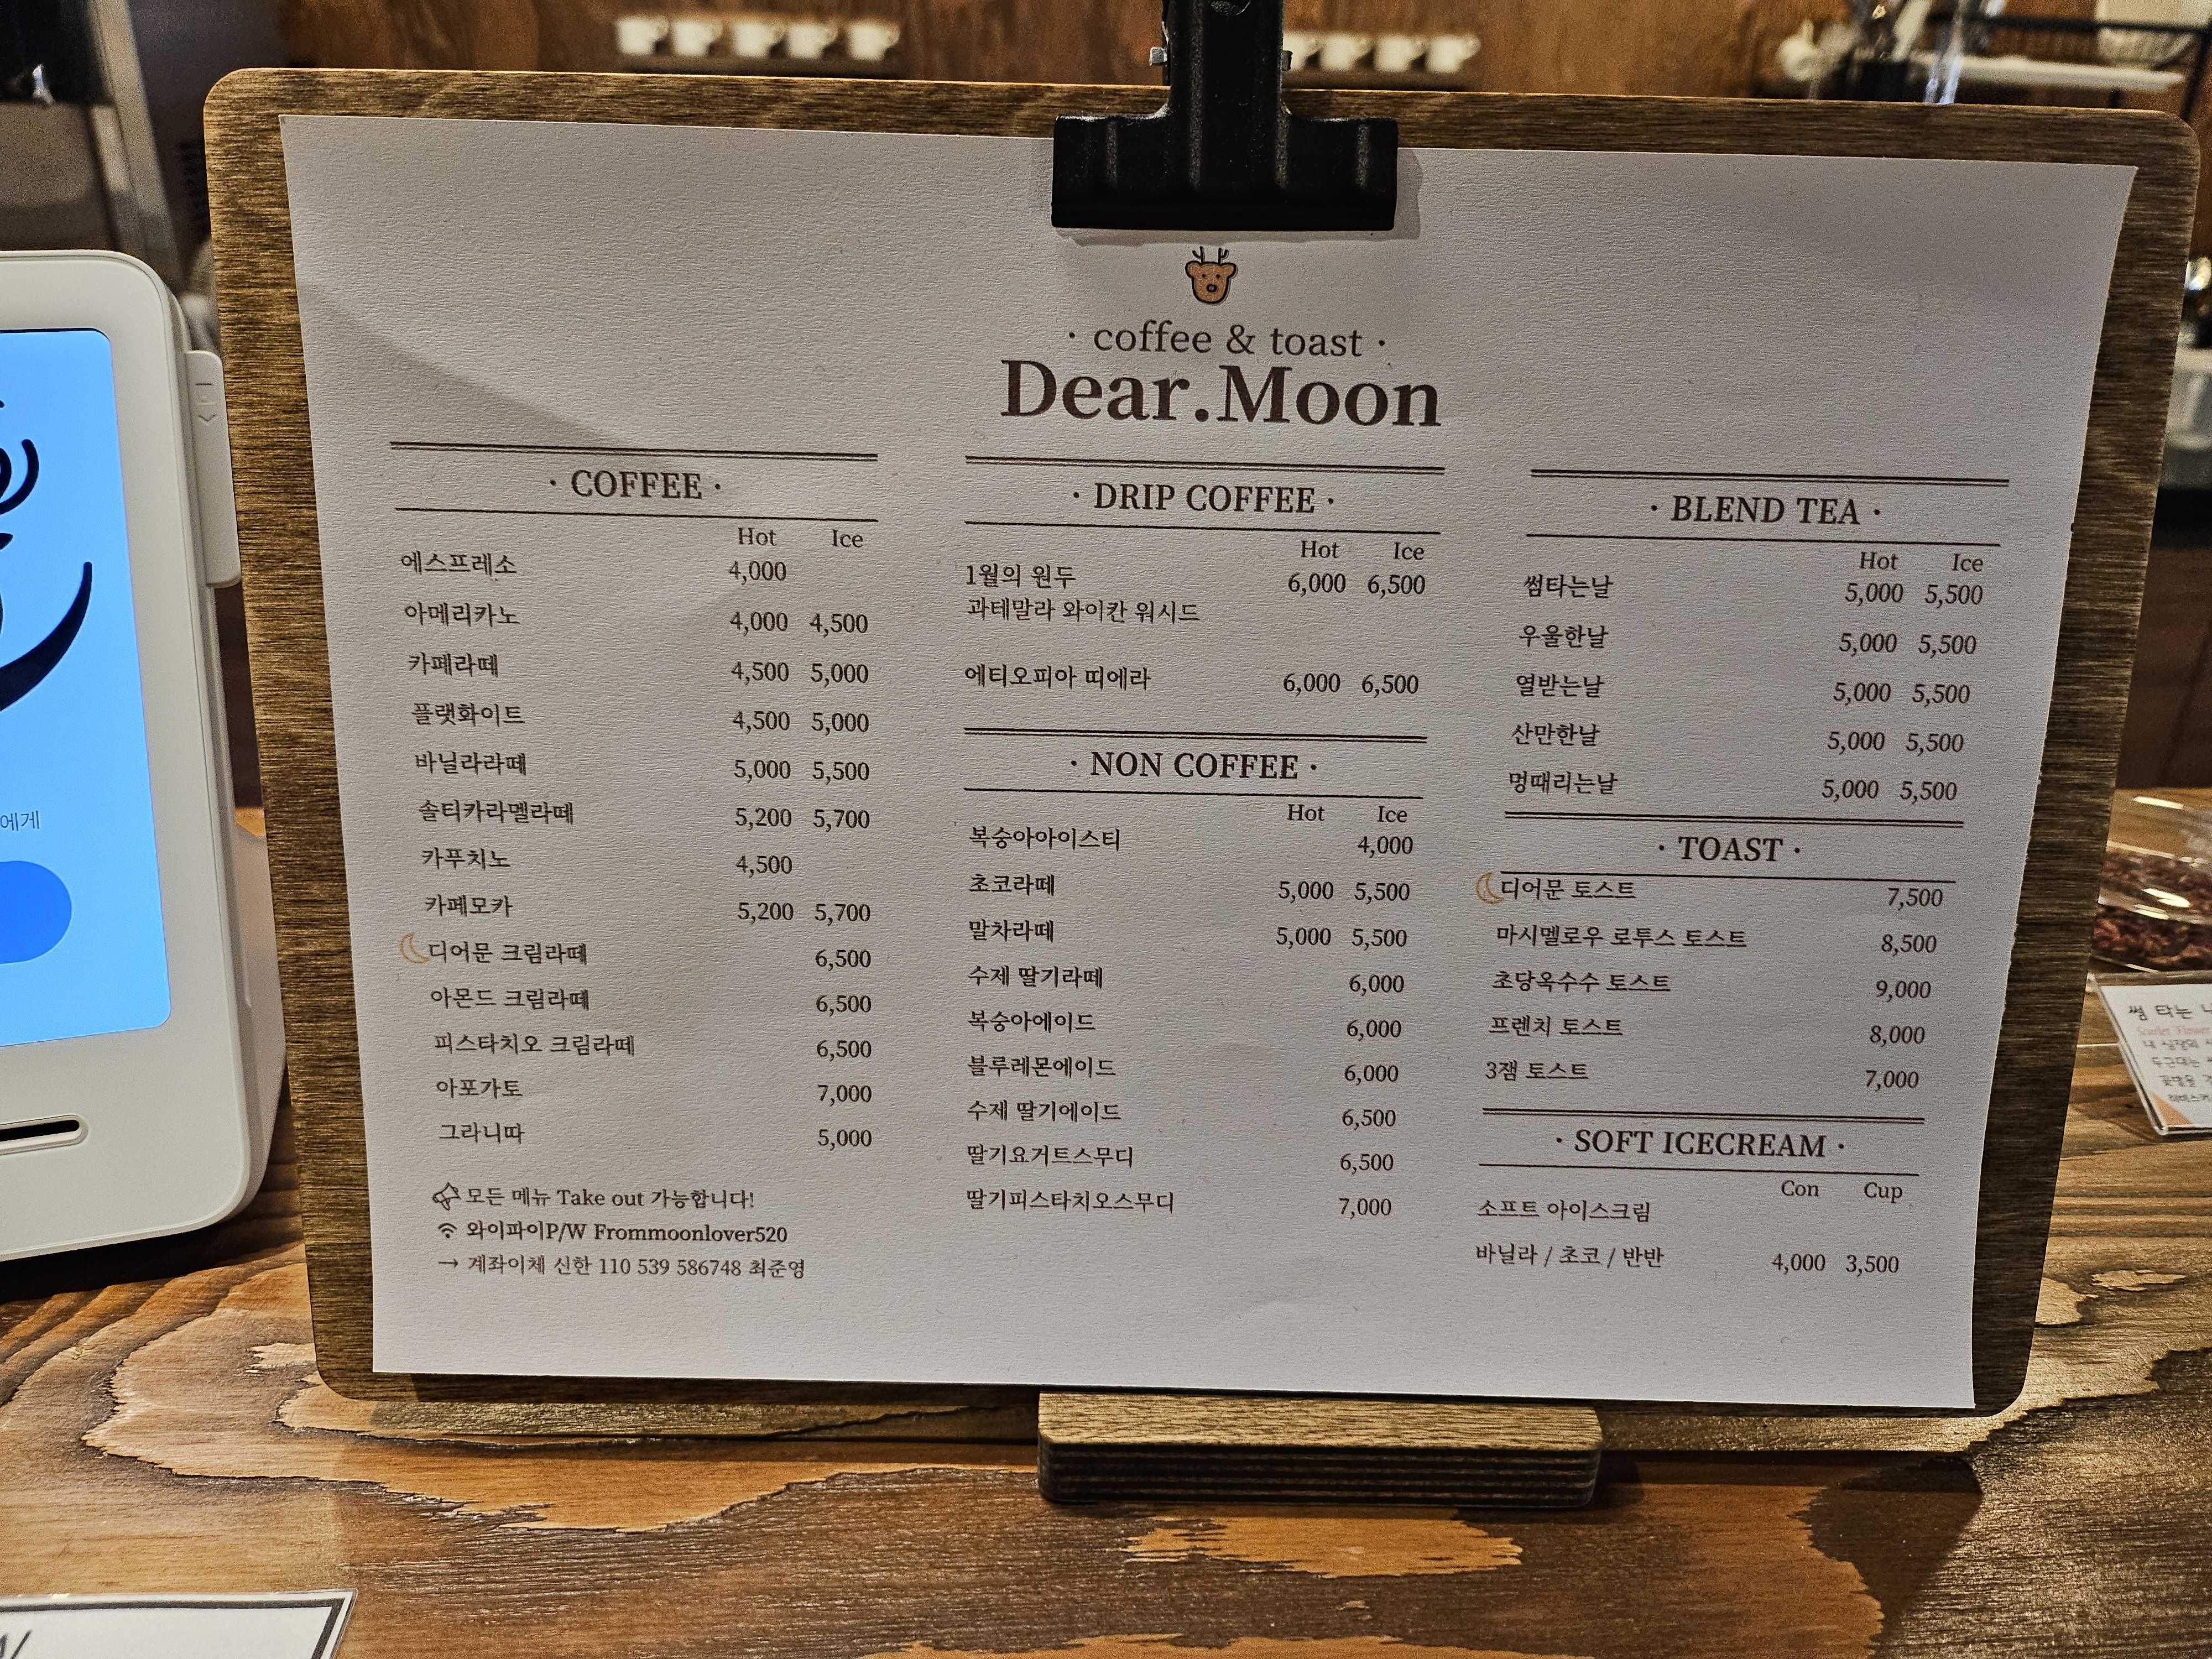 · coffee & toast ·
Dear.Moon
· COFFEE ·
Hot Ice
에스프레소 4,000
아메리카노 4,000 4,500
카페라떼 4,500 5,000
플랫화이트 4,500 5,000
바닐라라떼 5,000 5,500
솔티카라멜라떼 5,200 5,700
카푸치노 4,500
카페모카 5,200 5,700
디어문 크림라떼 6,500
아몬드 크림라떼 6,500
피스타치오 크림라떼 6,500
아포가토 7,000
그라니따 5,000
모든 메뉴 Take out 가능합니다!
와이파이P/W Frommoonlover520
→ 계좌이체 신한 110 539 586748 최준영
· DRIP COFFEE ·
Hot Ice
1월의 원두 6,000 6,500
과테말라 와이칸 워시드
에티오피아 띠에라 6,000 6,500
· NON COFFEE ·
Hot Ice
복숭아아이스티 4,000
초코라떼 5,000 5,500
말차라떼 5,000 5,500
수제 딸기라떼 6,000
복숭아에이드 6,000
블루레몬에이드 6,000
수제 딸기에이드 6,500
딸기요거트스무디 6,500
딸기피스타치오스무디 7,000
· BLEND TEA ·
Hot Ice
썸타는날 5,000 5,500
우울한날 5,000 5,500
열받는날 5,000 5,500
산만한날 5,000 5,500
멍때리는날 5,000 5,500
· TOAST ·
디어문 토스트 7,500
마시멜로우 로투스 토스트 8,500
초당옥수수 토스트 9,000
프렌치 토스트 8,000
3잼 토스트 7,000
· SOFT ICECREAM ·
Con Cup
소프트 아이스크림
바닐라 / 초코 / 반반 4,000 3,500
에게
썸 타는